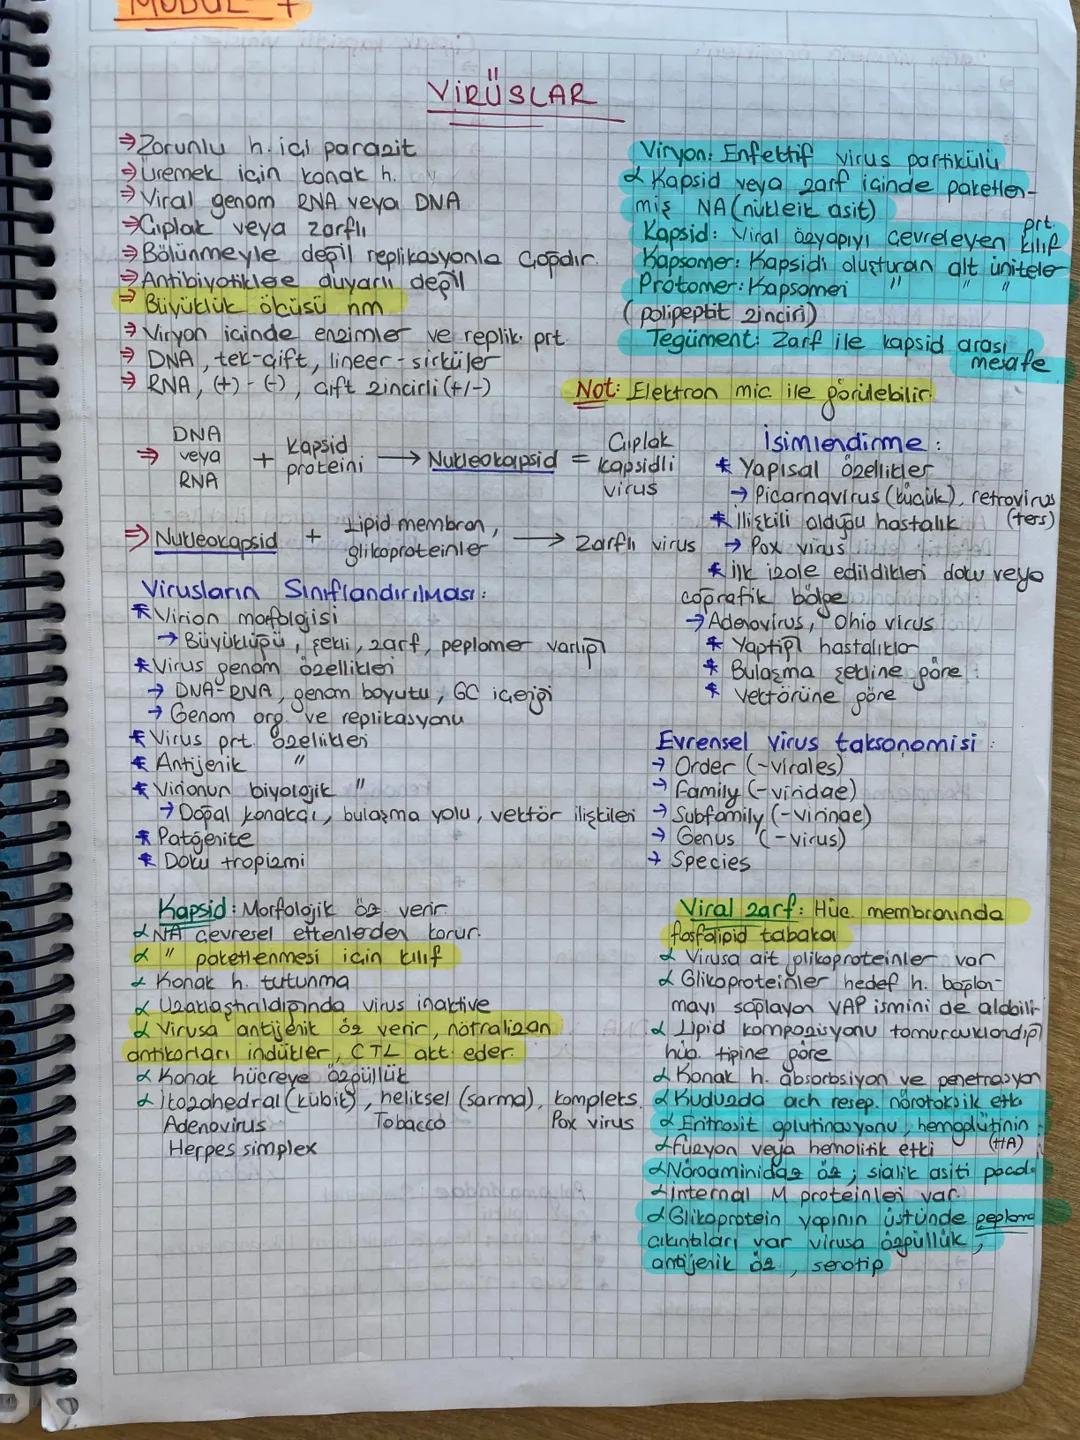 MODÜL 7
VİRÜSLAR
⇒ Zorunlu h. içi parazit
⇒ Üremek için konak h.
⇒ Viral genom RNA veya DNA
⇒ Çıplak veya zarflı
⇒ Bölünmeyle değil replikasyonla çoğalır.
⇒ Antibiyotiklere duyarlı değil
⇒ Büyüklük ölçüsü nm
⇒ Viryon içinde enzimler ve replik. prt.
⇒ DNA, tek-çift, lineer-sirküler
⇒ RNA, (+)-(-), çift zincirli (+/-)
Viryon: Enfektif virus partikülü
α Kapsid veya zarf içinde paketlen-
miş NA (nükleik asit)
Kapsid: Viral özyapıyı çevreleyen prt. kılıf
Kapsomer: Kapsidi oluşturan alt üniteler
Protomer: Kapsomeri " " "
(polipeptit zinciri)
Tegüment: Zarf ile kapsid arası
mesafe
Not: Elektron mic ile görülebilir.
⇒ DNA veya RNA + Kapsid proteini → Nukleokapsid = Çıplak kapsidli virus
⇒ Nukleokapsid + Lipid membran, glikoproteinler → Zarflı virus
İsimlendirme:
* Yapısal özellikler
→ Picarnavirus (küçük), retrovirus
(ters)
* İlişkili olduğu hastalık
→ Pox virus
* İlk izole edildikleri doku veya
coğrafik bölge
→ Adenovirus, Ohio virus
* Yaptığı hastalıklar
* Bulaşma şekline göre
* Vektörüne göre
Virusların Sınıflandırılması:
* Virion morfolojisi
→ Büyüklüğü, şekli, zarf, peplomer varlığı
* Virus genom özellikleri
→ DNA-RNA, genom boyutu, GC içeriği
→ Genom org. ve replikasyonu
* Virus prt. özellikleri
* Antijenik "
* Virionun biyolojik "
→ Doğal konakçı, bulaşma yolu, vektör ilişkileri
* Patojenite
* Doku tropizmi
Evrensel virus taksonomisi:
→ Order (-virales)
→ Family (-viridae)
→ Subfamily (-virinae)
→ Genus (-virus)
→ Species
Kapsid: Morfolojik öz. verir.
α NA çevresel etkenlerden korur.
α " paketlenmesi için kılıf
α Konak h. tutunma
α Uzaklaştırıldığında virus inaktive
α Virusa antijenik öz verir, nötralizan
antikorları indükler, CTL akt. eder.
α Konak hücreye özgüllük
α İkozahedral (kübik), heliksel (sarma), kompleks
Adenovirus Tobacco Pox virus
Herpes simplex
Viral zarf: Hüc. membranında
fosfolipid tabaka
α Virusa ait glikoproteinler var
α Glikoproteinler hedef h. bağlan-
mayı sağlayan VAP ismini de alabilir
α Lipid kompozisyonu tomurcuklandığı
hüc. tipine göre
α Konak h. absorbsiyon ve penetrasyon
α Kuduzda ach resep. nörotoksik etki
α Eritrosit aglutinasyonu, hemaglütinin
(HA)
α füzyon veya hemolitik etki
α Nöroaminidaz öz; sialik asiti parçal.
α internal M proteinleri var.
α Glikoprotein yapının üstünde peplomer
çıkıntıları var virusa özgüllük,
antijenik öz., serotip